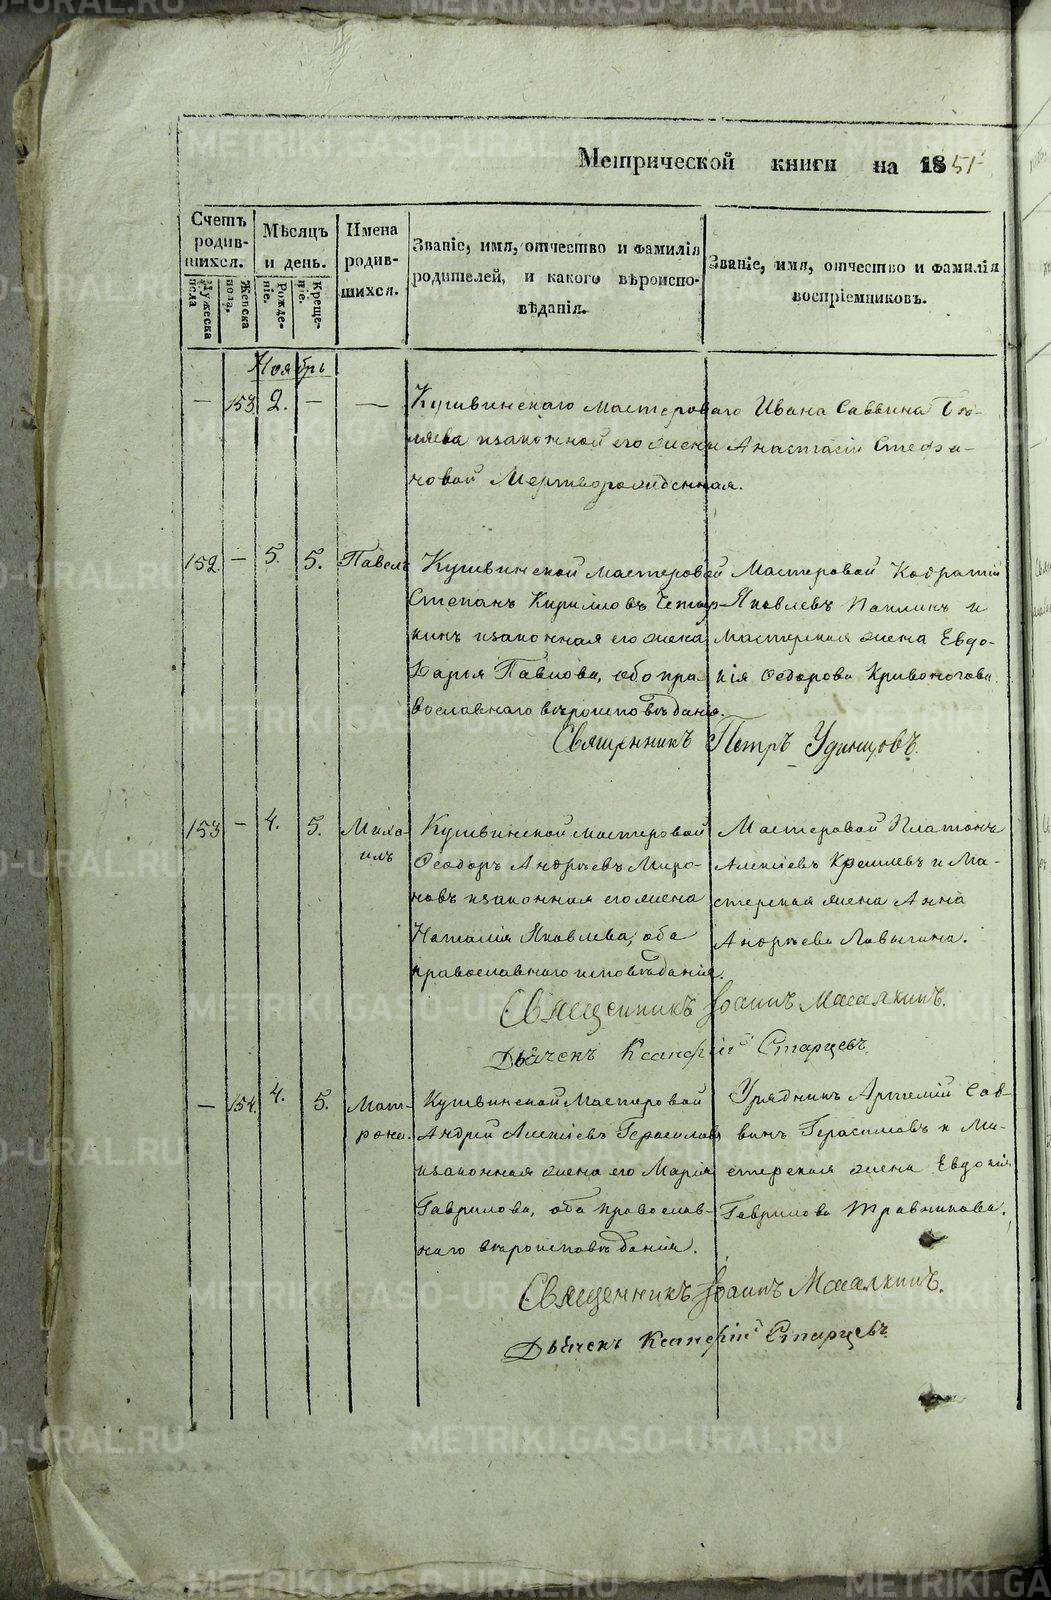 Метрической книги на 1851
Счетъ родив-шихся.
Мѣсяцъ и день.
Имена родив-шихся.
Званіе, имя, отчество и фамилія родителей, и какого вѣроиспо-вѣданія.
Званіе, имя, отчество и фамилія воспріемниковъ.
Мужеска пола
Женска пола,
Рожде-ніе.
Креще-ніе.
Ноябрь
— 153. 2. — —
Кушвинскаго мастероваго Ивана Саввина Бѣ-
ляева изаконной его жены Анастасіи Стефа-
новой Мертворожденная.
152. — 5. 5. Павелъ
Кушвинской мастеровой
Степанъ Кирилловъ
кинъ изаконная его жена
Дарья Павлова, обо пра
вославнаго вѣроисповѣданія.
Мастеровой Кодратій
Яковлевъ Паплинъ и
мастерская жена Евдо-
кія Ѳедорова Кривоногова.
Священникъ Петръ Удинцовъ.
153 — 4. 5. Миха-
илъ
Кушвинской мастеровой
Ѳеодоръ Андреевъ Миро-
новъ изаконная его жена
Наталія Яковлева, оба
православнаго исповѣданія.
Мастеровой Платонъ
Алексіевъ и Ма-
стерская жена Анна
Андреева Лавыгина.
Священникъ Іоаннъ Масалкинъ.
Дьячекъ Ксанфій Старцевъ
— 154. 4. 5. Мат-
рона.
Кушвинской Мастеровой
Андрей Алексіевъ Герасимовъ
изаконная жена его Марія
Гаврилова, оба православ-
наго вѣроисповѣданія.
Урядникъ Артемій Сав-
винъ Герасимовъ и Ма-
стерская жена Евдокія
Гаврилова Травникова.
Священникъ Іоаннъ Масалкинъ.
Дьячекъ Ксанфій Старцевъ
METRIKI.GASO-URAL.RU